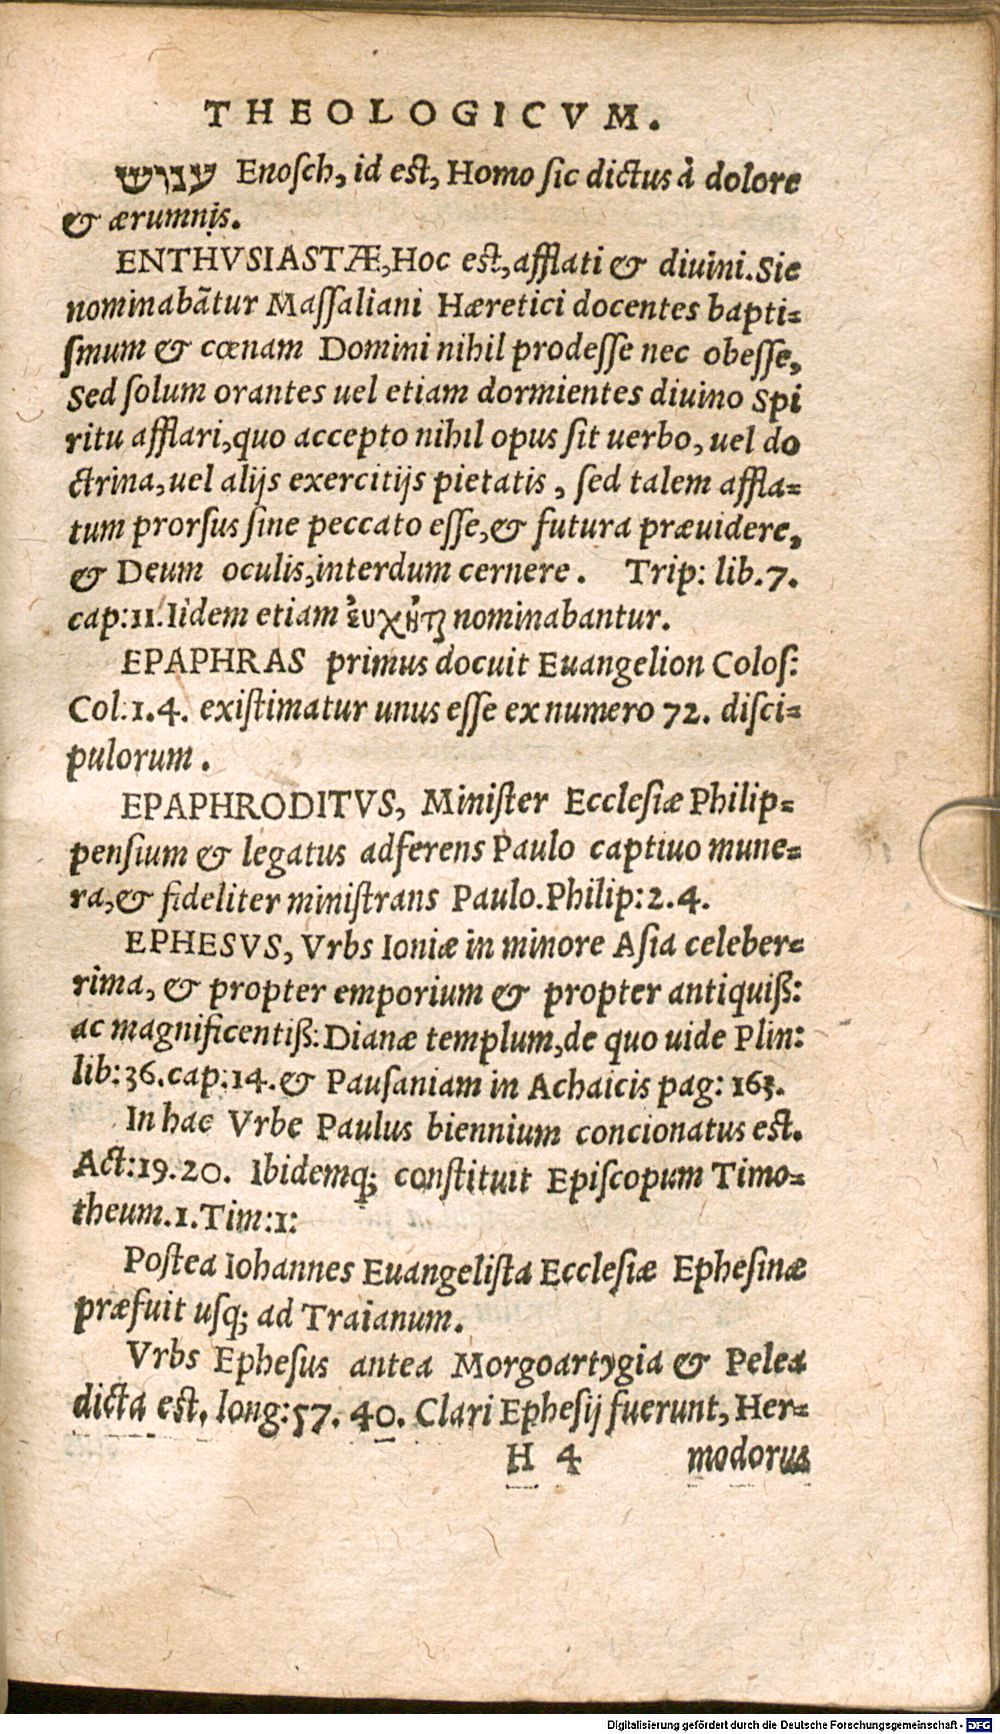 THEOLOGICVM.
ענוש Enoſch, id eſt, Homo ſic dictus à dolore
& ærumnis.
ENTHVSIASTÆ, Hoc eſt, afflati & diuini. Sic
nominabãtur Maſſaliani Hæretici docentes bapti-
ſmum & cœnam Domini nihil prodeſſe nec obeſſe,
Sed ſolum orantes uel etiam dormientes diuino Spi
ritu afflari, quo accepto nihil opus ſit uerbo, uel do
ctrina, uel alijs exercitijs pietatis, ſed talem affla-
tum prorſus ſine peccato eſſe, & futura præuidere,
& Deum oculis, interdum cernere. Trip: lib. 7.
cap: 11. Iidem etiam nominabantur.
EPAPHRAS primus docuit Euangelion Coloſ:
Col. 1. 4. exiſtimatur unus eſſe ex numero 72. diſci-
pulorum.
EPAPHRODITVS, Miniſter Eccleſiæ Philip-
penſium & legatus adferens Paulo captiuo mune-
ra, & fideliter miniſtrans Paulo. Philip: 2. 4.
EPHESVS, Vrbs Ioniæ in minore Aſia celeber-
rima, & propter emporium & propter antiquiß:
ac magnificentiß: Dianæ templum, de quo uide Plin:
lib: 36. cap: 14. & Pauſaniam in Achaicis pag: 163.
In hac Vrbe Paulus biennium concionatus eſt.
Act: 19. 20. Ibidemq; conſtituit Epiſcopum Timo-
theum. 1. Tim: 1:
Poſtea Iohannes Euangeliſta Eccleſiæ Epheſinæ
præfuit uſq; ad Traianum.
Vrbs Epheſus antea Morgoartygia & Pelea
dicta eſt. long: 57. 40. Clari Epheſij fuerunt, Her-
H 4 modorus
Digitalisierung gefördert durch die Deutsche Forschungsgemeinschaft - DFG